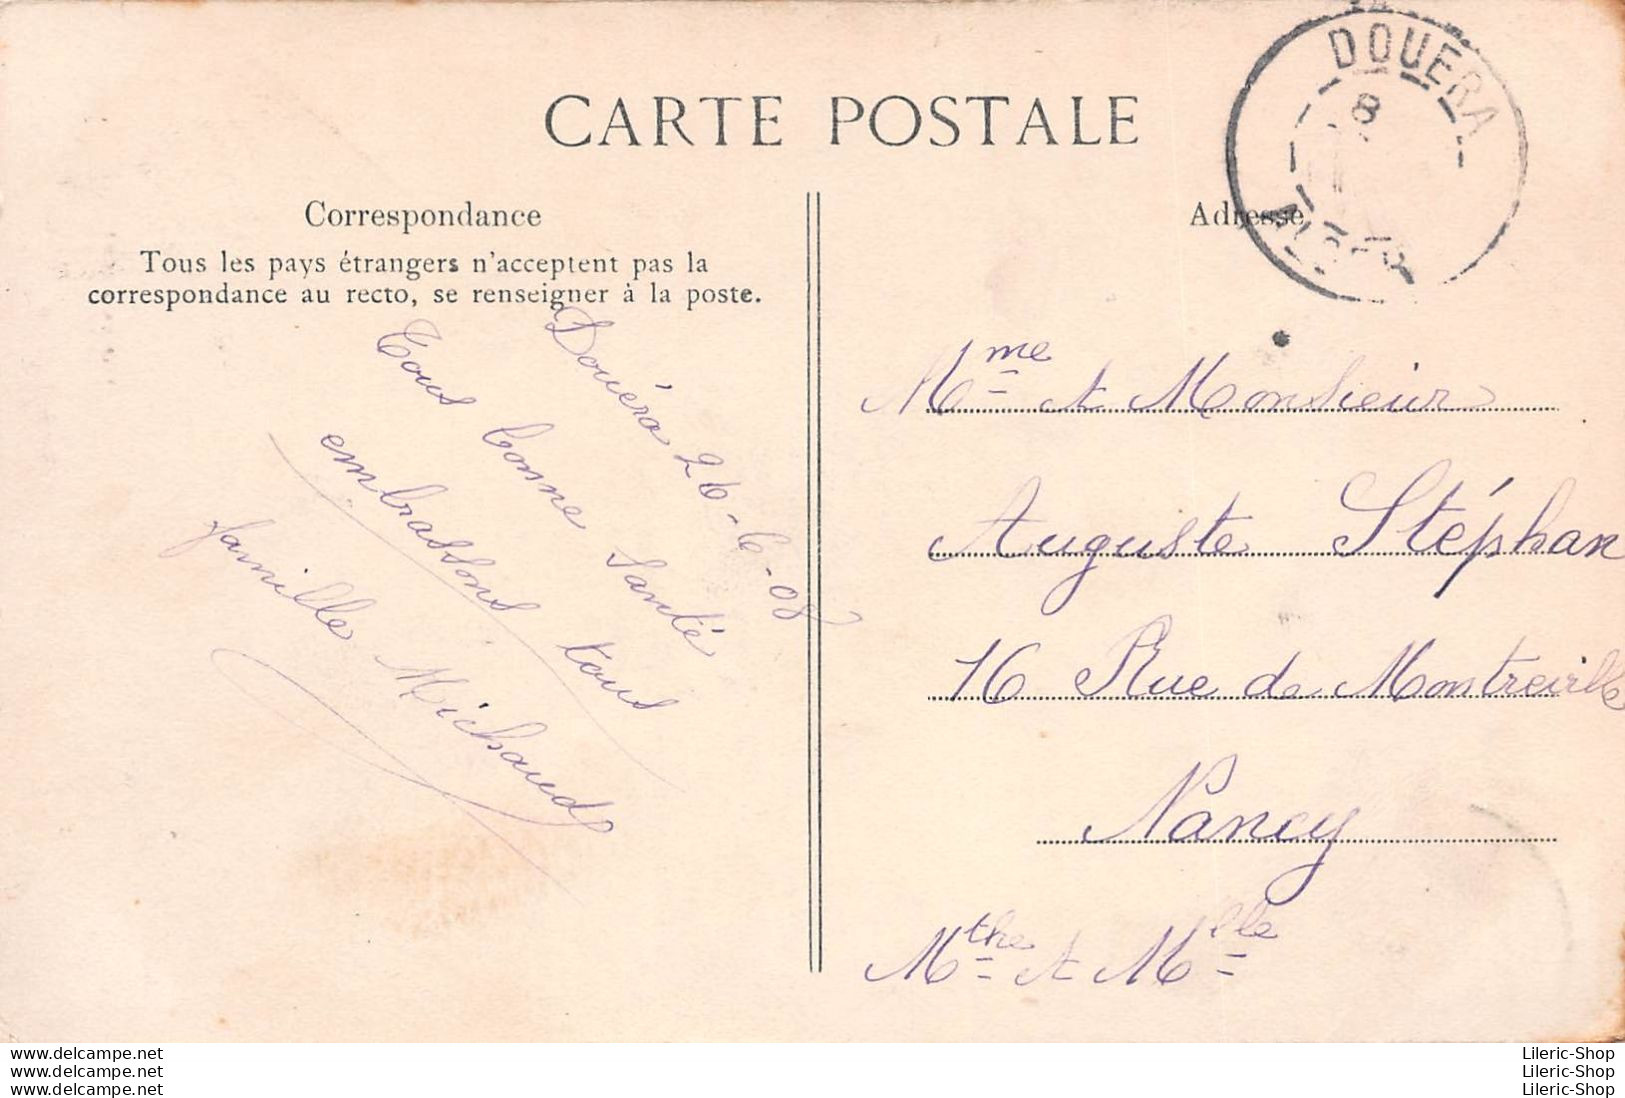 CARTE POSTALE
Correspondance
Tous les pays étrangers n'acceptent pas la
correspondance au recto, se renseigner à la poste.
Douéra 26-6-08
Tous bonne santé
embrassons tous
famille Michaud
DOUERA
8
ALGER
Adresse
Mme et Monsieur
Auguste Stéphan
16 Rue de Montreville
Nancy
Mthe et Mlle
www.delcampe.net
www.delcampe.net
www.delcampe.net
Lileric-Shop
Lileric-Shop
Lileric-Shop